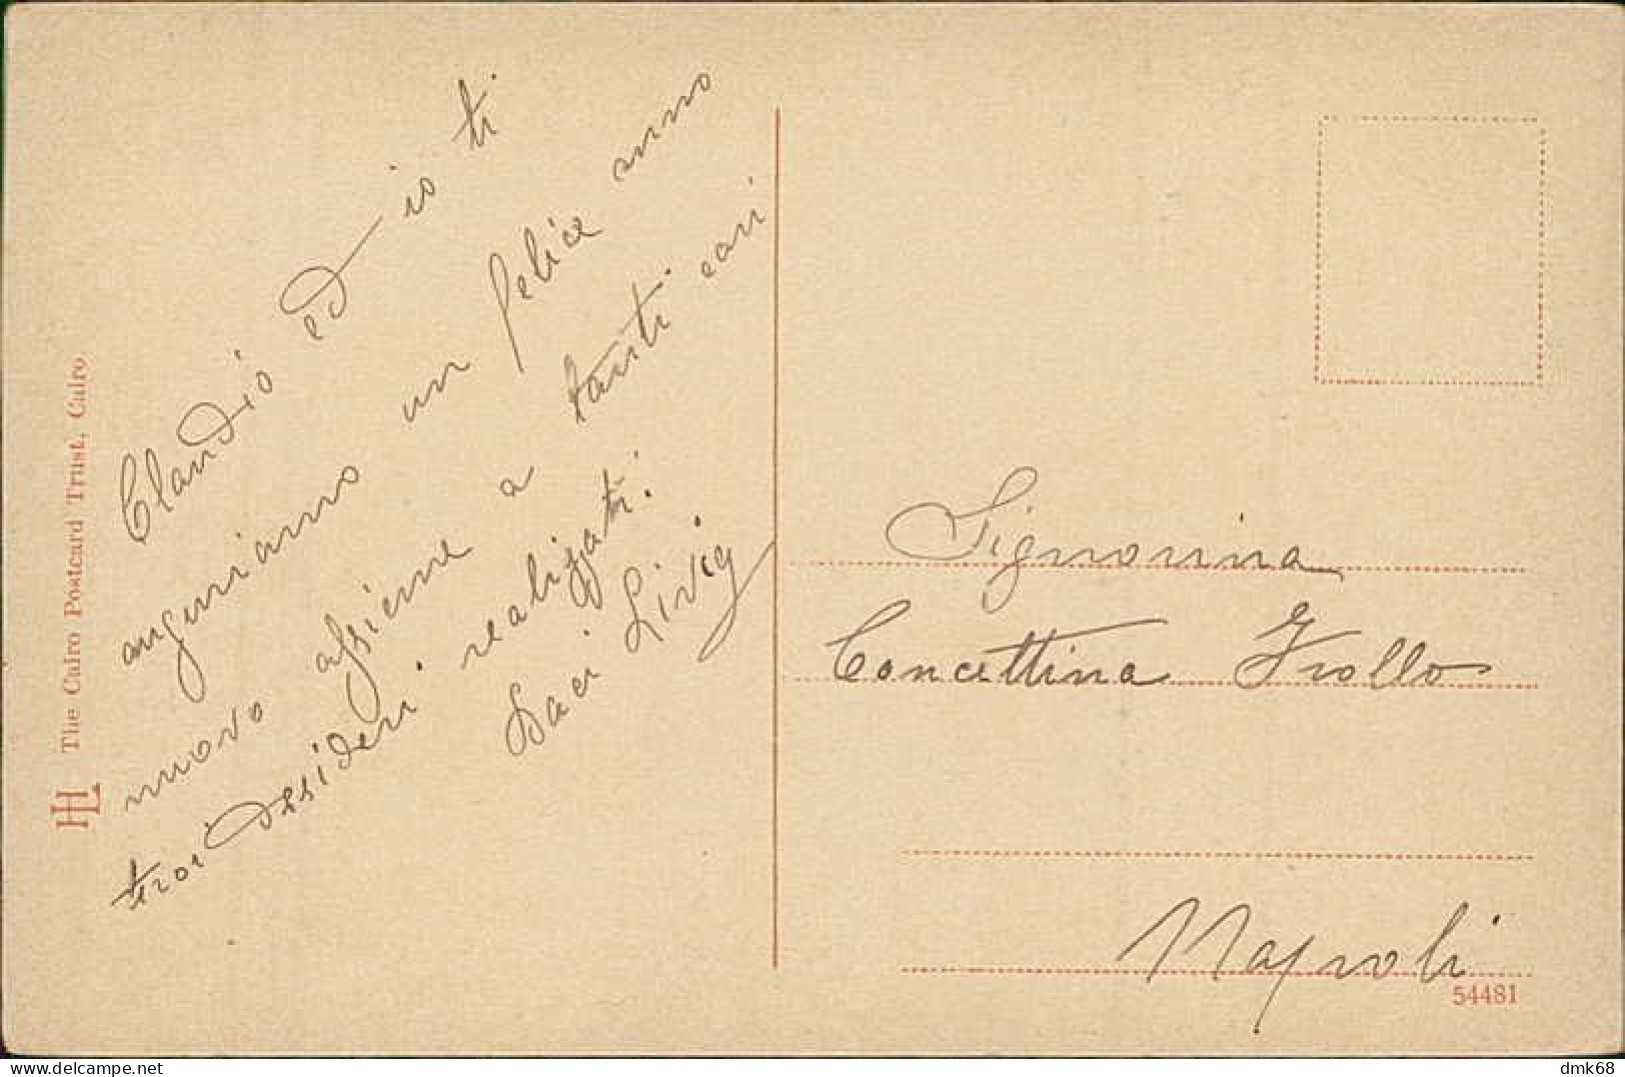 Claudio ed io ti
auguriamo un felice anno
nuovo assieme a tanti cari
tuoi dessideri realizzati.
Baci Livia
HL The Cairo Postcard Trust, Cairo.
Signorina
Concettina Frollo
Napoli
54481
delcampe.net
dmk68